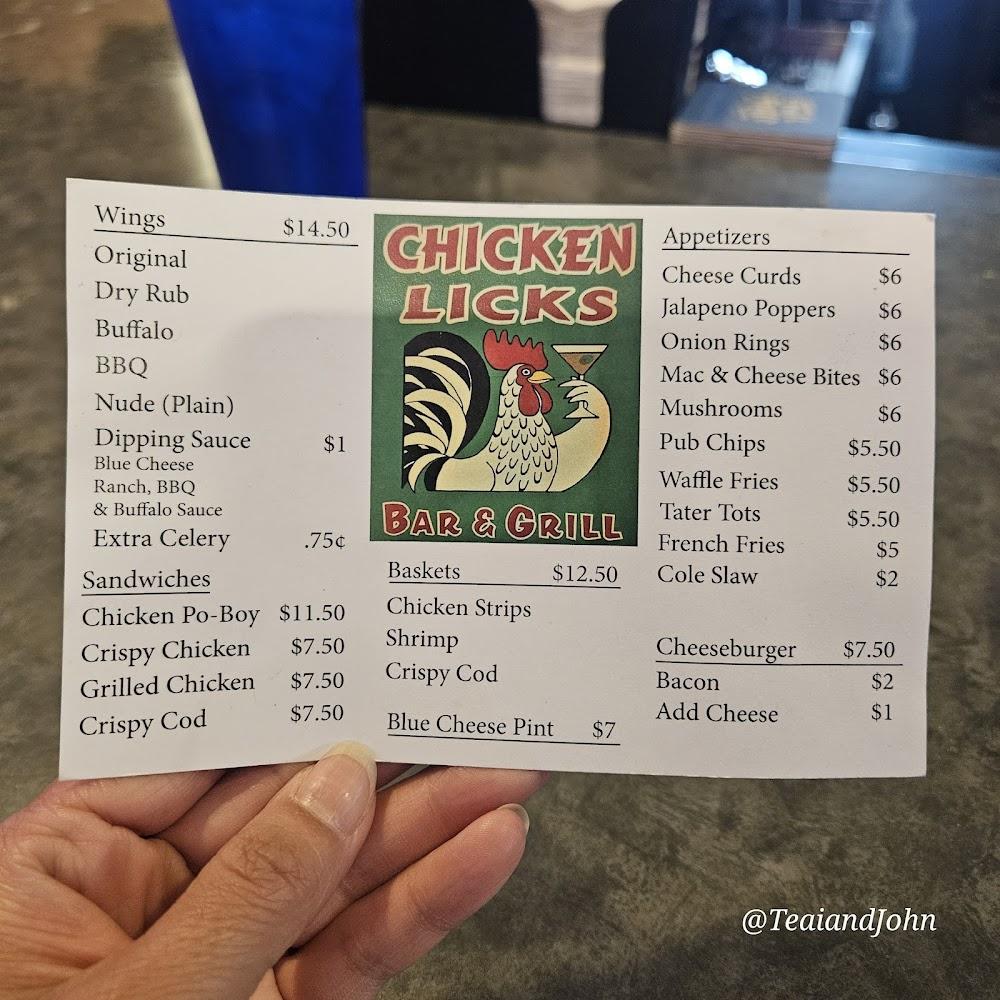 Wings $14.50
Original
Dry Rub
Buffalo
BBQ
Nude (Plain)
Dipping Sauce $1
Blue Cheese
Ranch, BBQ
& Buffalo Sauce
Extra Celery .75¢
Sandwiches
Chicken Po-Boy $11.50
Crispy Chicken $7.50
Grilled Chicken $7.50
Crispy Cod $7.50
CHICKEN
LICKS
BAR & GRILL
Baskets $12.50
Chicken Strips
Shrimp
Crispy Cod
Blue Cheese Pint $7
Appetizers
Cheese Curds $6
Jalapeno Poppers $6
Onion Rings $6
Mac & Cheese Bites $6
Mushrooms $6
Pub Chips $5.50
Waffle Fries $5.50
Tater Tots $5.50
French Fries $5
Cole Slaw $2
Cheeseburger $7.50
Bacon $2
Add Cheese $1
@TeaiandJohn